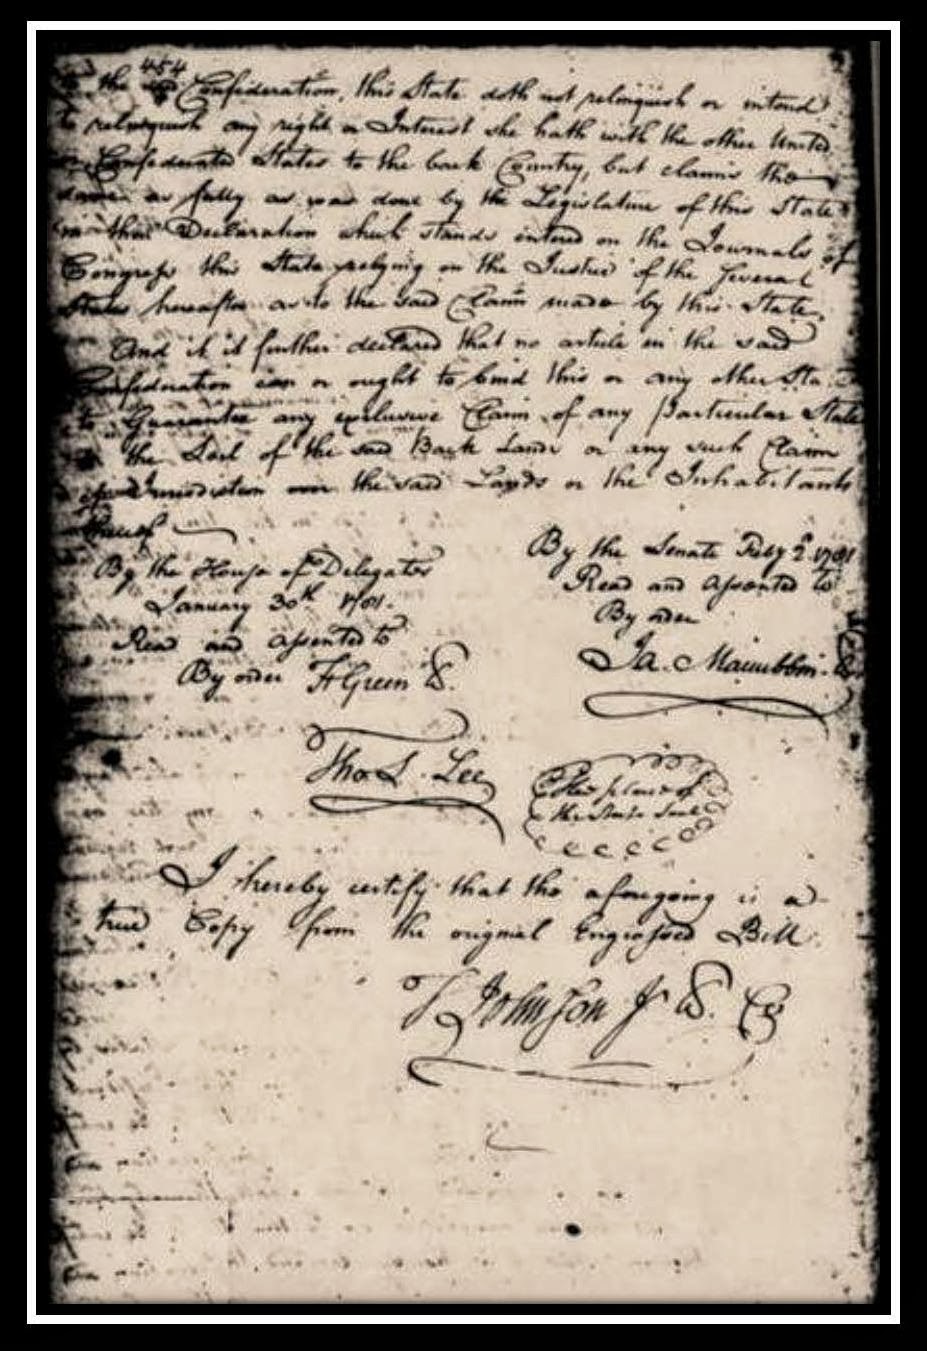 454
to the said Confederation, this State doth not relinquish or intend
to relinquish any right or Interest she hath with the other United
or Confederated States to the back Country, but claims the
same as fully as was done by the Legislature of this State
in that Declaration which stands entered on the Journals of
Congress this State relying on the Justice of the several
States hereafter as to the said Claim made by this State.
And it is further declared that no article in the said
Confederation can or ought to bind this or any other State
to Guarantee any exclusive Claim of any Particular State
to the Soil of the said Back Lands or any such Claim
of Jurisdiction over the said Lands or the Inhabitants
thereof
By the House of Delegates
January 30th 1781.
Read and assented to
By order F Green
By the Senate Feby 2d 1781
Read and assented to
By order
Ja. Maccubbin
Tho S. Lee
The place of
the State Seal
I hereby certify that the aforegoing is a
true Copy from the original Engrossed Bill.
T Johnson Jr